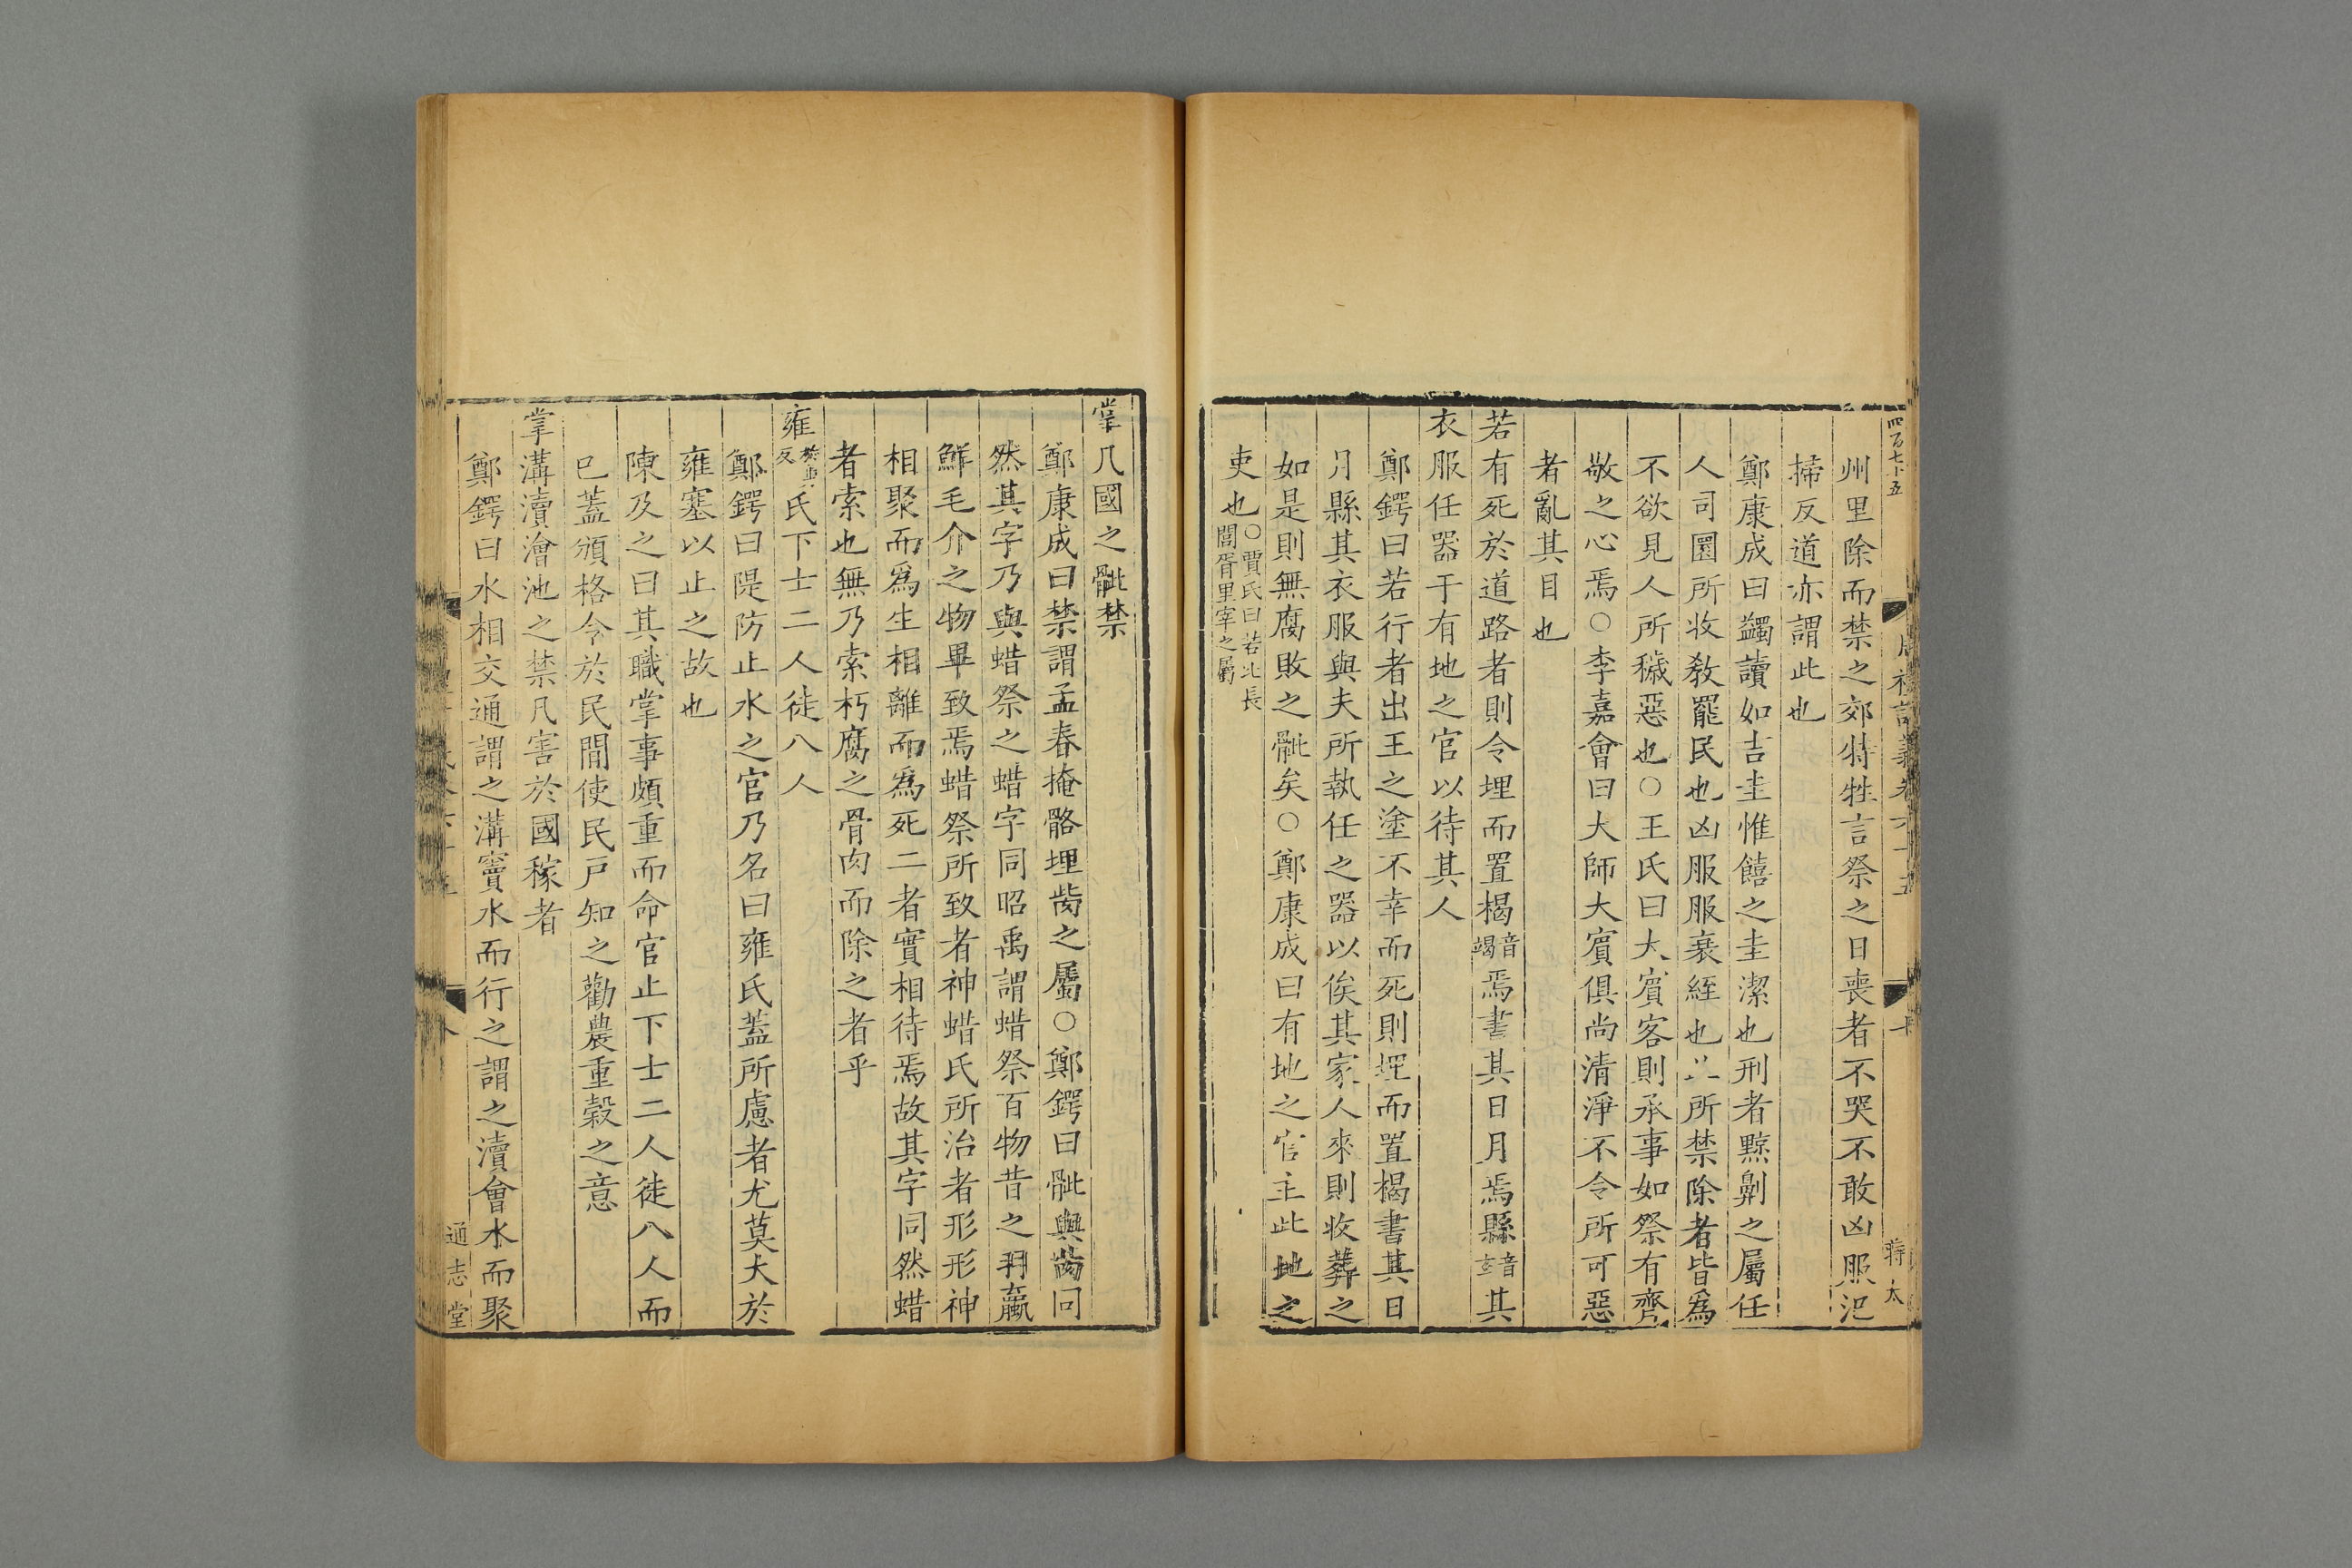 四百七十五
周禮訂義卷六十五
蔣太
州里除而禁之郊特牲言祭之日喪者不哭不敢凶服氾
掃反道亦謂此也
鄭康成曰蠲讀如吉圭惟饎之圭潔也刑者黥劓之屬任
人司圜所收教罷民也凶服服衰絰也所禁除者皆爲
不欲見人所穢惡也○王氏曰大賓客則承事如祭有齊
敬之心焉○李嘉會曰大師大賓俱尚清淨不令所可惡
者亂其目也
若有死於道路者則令埋而置楬音竭焉書其日月焉縣音玄其
衣服任器于有地之官以待其人
鄭鍔曰若行者出王之塗不幸而死則埋而置楬書其日
月縣其衣服與夫所執任之器以俟其家人來則收葬之
如是則無腐敗之骴矣○鄭康成曰有地之官主此地之
吏也○賈氏曰若比長閭胥里宰之屬
掌凡國之骴禁
鄭康成曰禁謂孟春掩骼埋胔之屬○鄭鍔曰骴與胔同
然其字乃與蜡祭之蜡字同昭禹謂蜡祭百物昔之羽蠃
鮮毛介之物畢致焉蜡祭所致者神蜡氏所治者形形神
相聚而爲生相離而爲死二者實相待焉故其字同然蜡
者索也無乃索朽腐之骨肉而除之者乎
雍反氏下士二人徒八人
鄭鍔曰隄防止水之官乃名曰雍氏蓋所慮者尤莫大於
雍塞以止之故也
陳及之曰其職掌事頗重而命官止下士二人徒八人而
已蓋頒格令於民間使民戶知之勸農重穀之意
掌溝瀆澮池之禁凡害於國稼者
鄭鍔曰水相交通謂之溝竇水而行之謂之瀆會水而聚
通志堂